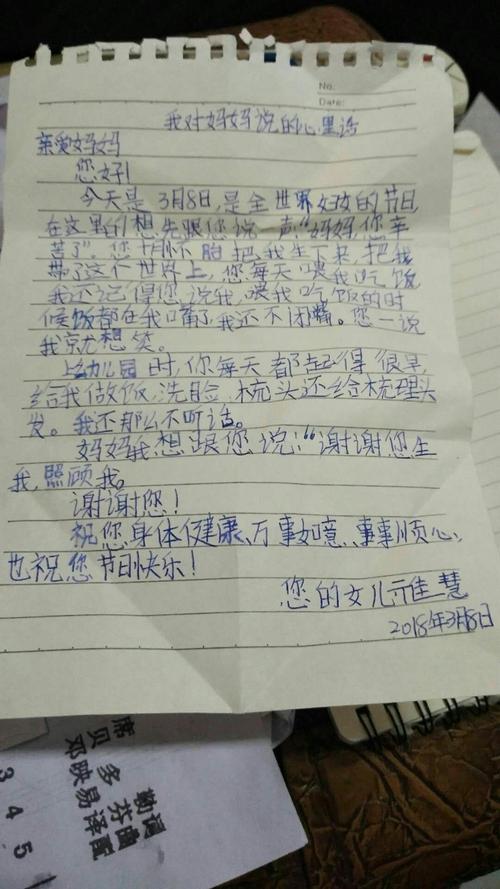 No.
Date:
我对妈妈说的心里话
亲爱妈妈
您好!
今天是3月8日,是全世界妇女的节日,
在这里的想先跟您说一声“妈妈,你辛
苦了”。您把我生下来,把我
带了这个世界上,您每天喂我吃饭,
我还记得您说我,喂我吃饭的时
候饭都在我嘴了,我还不闭嘴。您一说
我就想笑。
上幼儿园时,你每天都起得很早,
给我做饭,洗脸、梳头还给梳理头
发。我还那么不听话。
妈妈我想跟您说:“谢谢您生
我,照顾我。
谢谢您!
祝您身体健康、万事如意、事事顺心,
也祝您节日快乐!
您的女儿佳慧
2018年3月8日
席勒词
贝多芬曲
邓映易译配
3 4 5